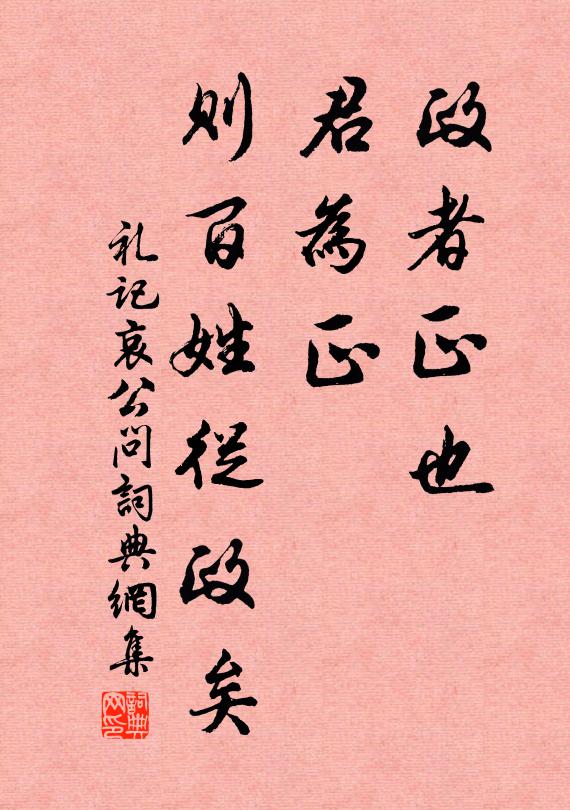 政者正也
君為正
則百姓從政矣
礼記哀公問詞典網集
詞典
网印